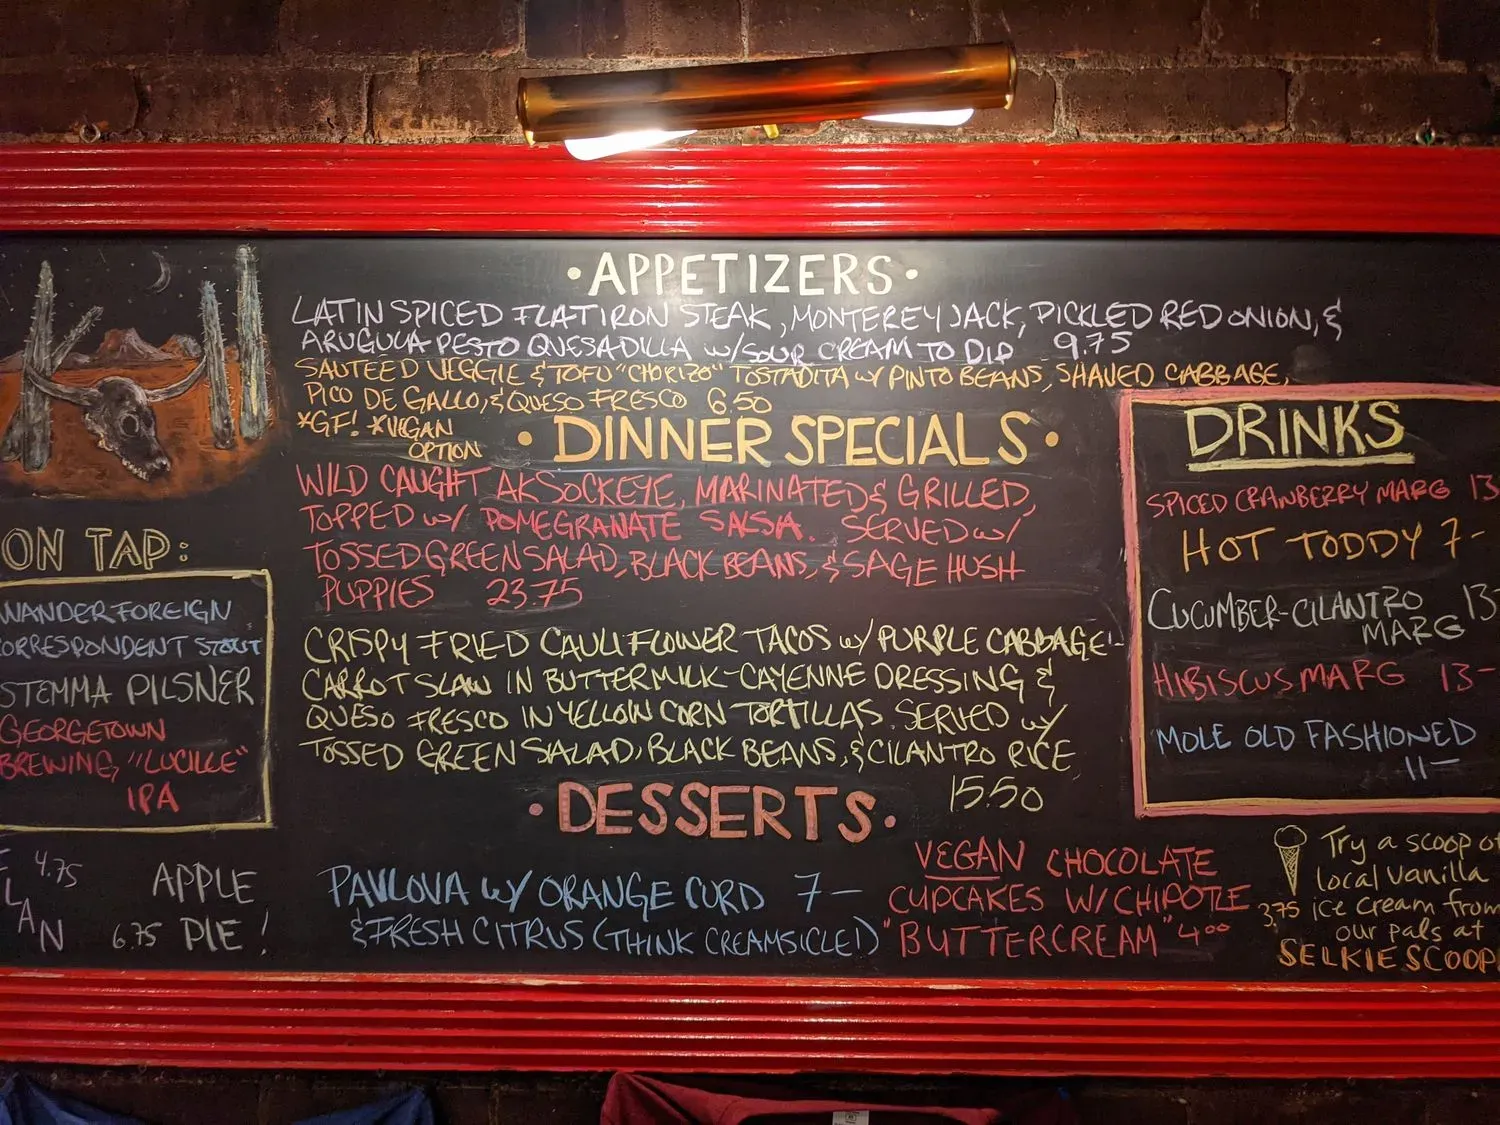 • APPETIZERS •
LATIN SPICED FLATIRON STEAK, MONTEREY JACK, PICKLED RED ONION, &
ARUGULA PESTO QUESADILLA w/SOUR CREAM TO DIP 9.75
SAUTEED VEGGIE & TOFU "CHORIZO" TOSTADITA w/ PINTO BEANS, SHAVED CABBAGE,
PICO DE GALLO, & QUESO FRESCO 6.50
*GF! *VEGAN
OPTION
• DINNER SPECIALS •
WILD CAUGHT AK SOCKEYE, MARINATED & GRILLED,
TOPPED w/ POMEGRANATE SALSA. SERVED w/
TOSSED GREEN SALAD, BLACK BEANS, & SAGE HUSH
PUPPIES 23.75
CRISPY FRIED CAULIFLOWER TACOS w/ PURPLE CABBAGE-
CARROT SLAW IN BUTTERMILK-CAYENNE DRESSING &
QUESO FRESCO IN YELLOW CORN TORTILLAS. SERVED w/
TOSSED GREEN SALAD, BLACK BEANS, & CILANTRO RICE
15.50
• DESSERTS •
PAVLOVA w/ ORANGE CURD 7-
& FRESH CITRUS (THINK CREAMSICLE!)
VEGAN CHOCOLATE
CUPCAKES W/ CHIPOTLE
"BUTTERCREAM" 4.00
ON TAP:
WANDER FOREIGN
CORRESPONDENT STOUT
STEMMA PILSNER
GEORGETOWN
BREWING, "LUCILLE"
IPA
4.75
LAN
APPLE
6.75 PIE!
DRINKS
SPICED CRANBERRY MARG 13
HOT TODDY 7-
CUCUMBER-CILANTRO 13-
MARG
HIBISCUS MARG 13-
MOLE OLD FASHIONED
11-
Try a scoop of
local vanilla
3.75 ice cream from
our pals at
SELKIE SCOOP